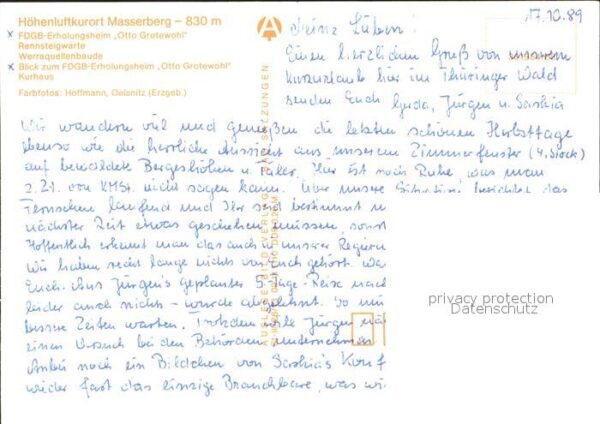 Höhenluftkurort Masserberg – 830 m
x FDGB-Erholungsheim „Otto Grotewohl"
Rennsteigwarte
Werraquellenbaude
x Blick zum FDGB-Erholungsheim „Otto Grotewohl"
Kurhaus
Farbfotos: Hoffmann, Oelsnitz (Erzgeb.)
17.10.89
Meine Lieben!
Einen herzlichen Gruß von unserem
Kurzurlaub hier im Thüringer Wald
senden Euch Gerda, Jürgen u. Saskia
Wir wandern viel und genießen die letzten schönen Herbsttage
ebenso wie die herrliche Aussicht aus unserem Zimmerfenster (4. Stock)
auf bewaldete Bergeshöhen u. Täler. Hier ist noch Ruhe, was man
z. Zt. von KMSt. nicht sagen kann. Über unsere Situation berichtet das
Fernsehen laufend und Ihr seid bestimmt
nächster Zeit etwas geschehen müssen, sonst
Hoffentlich erkennt man das auch in unserer Regierun
Wir haben recht lange nichts von Euch gehört. Wa
Euch. Aus Jürgen's geplanter 5-Tage-Reise nach
leider auch nichts – wurde abgelehnt. So
bessere Zeiten warten. Trotzdem will Jürgen
einen Versuch bei den Behörden unternehmen
Anbei noch ein Bildchen von Saskia's Konf
wieder fast das einzige Brauchbare, was wi
AUSLESE-BILD-VERLAG
privacy protection
Datenschutz